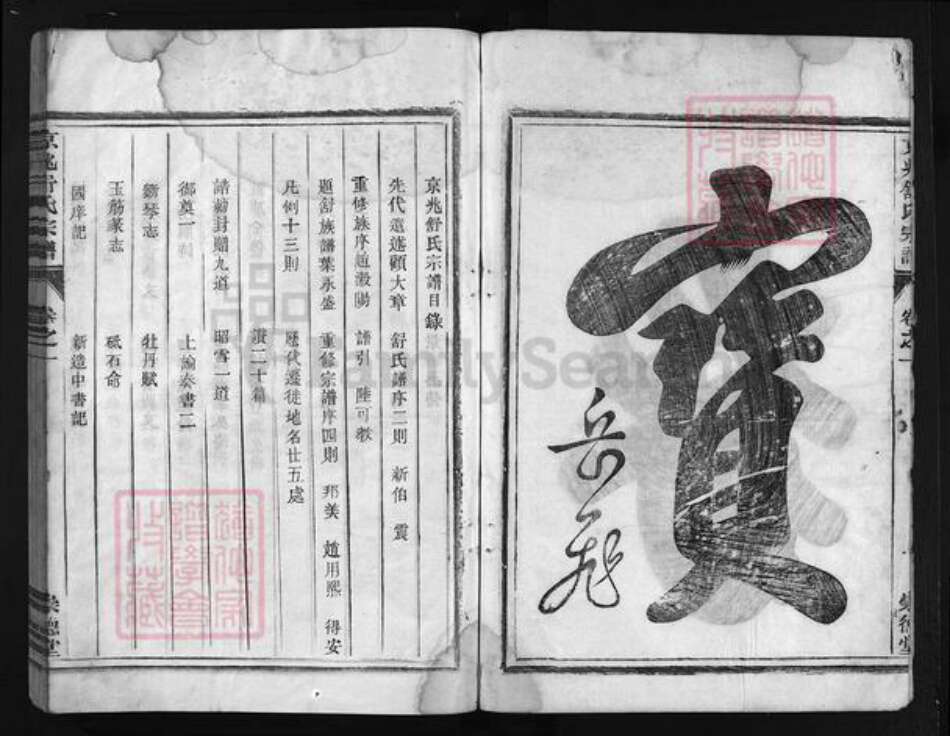 寶
岳飛
京兆舒氏宗譜 卷之一 崇德堂
京兆舒氏宗譜目錄
先代遺述顧大章 舒氏譜序二則 新伯 震
重修族序趙漢陽 譜引 陸可教
題舒族譜葉永盛 重修宗譜序四則 邦美 趙用熙 得安
凡例十三則 歷代遷徙地名廿五處
讚二十篇
誥勅封贈九道 昭雪一道
御奠一 上諭奏書二
斲琴志 牡丹賦
玉筯篆志 砥石命
國庠記 新造中書記
京兆舒氏宗譜 卷之一 崇德堂
FamilySearch